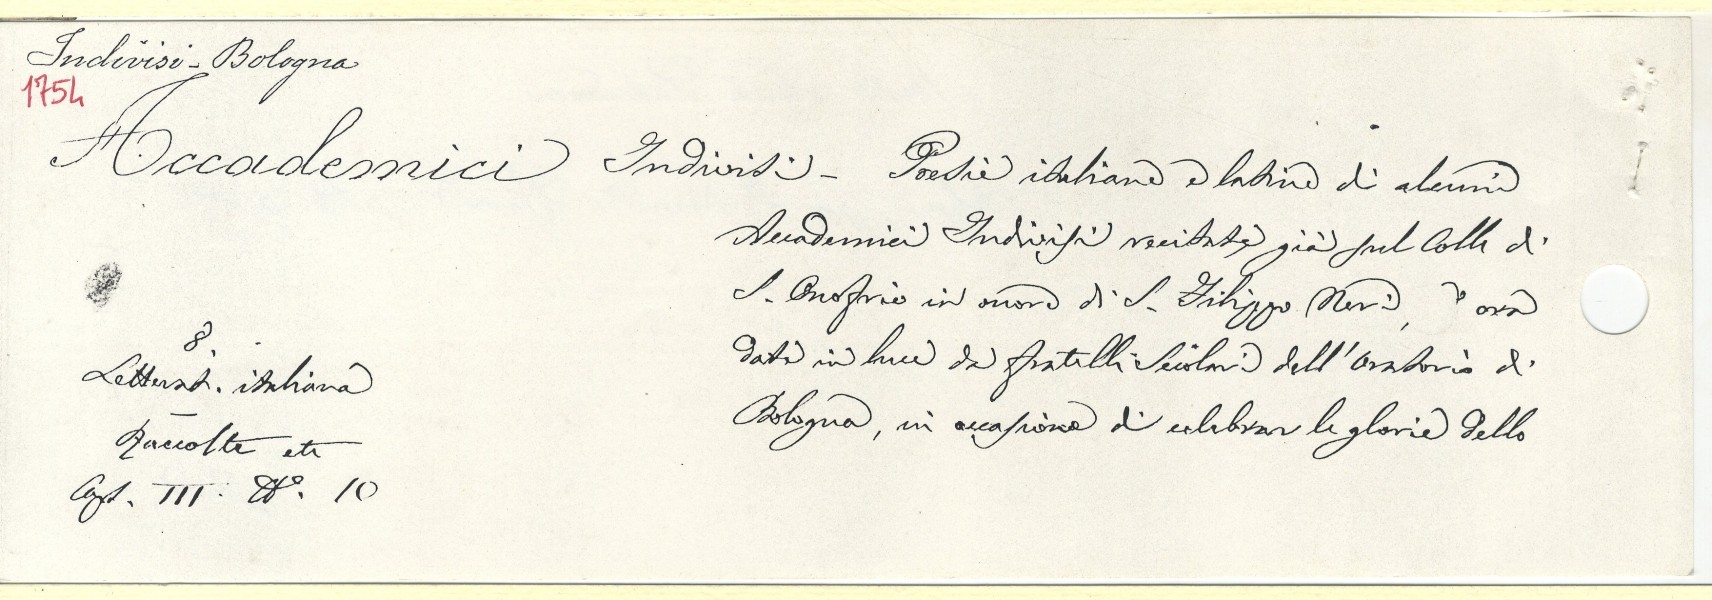 Indivisi - Bologna
1754
Accademici Indivisi - Poesie italiane e latine di alcuni
Accademici Indivisi recitate già sul Colle di
S. Onofrio in onore di S. Filippo Neri, e ora
date in luce da fratelli Secolari dell'Oratorio di
Bologna, in occasione di celebrar le glorie dello
8.
Letterat. italiana
Raccolte etc
Cart. III. N.º 10